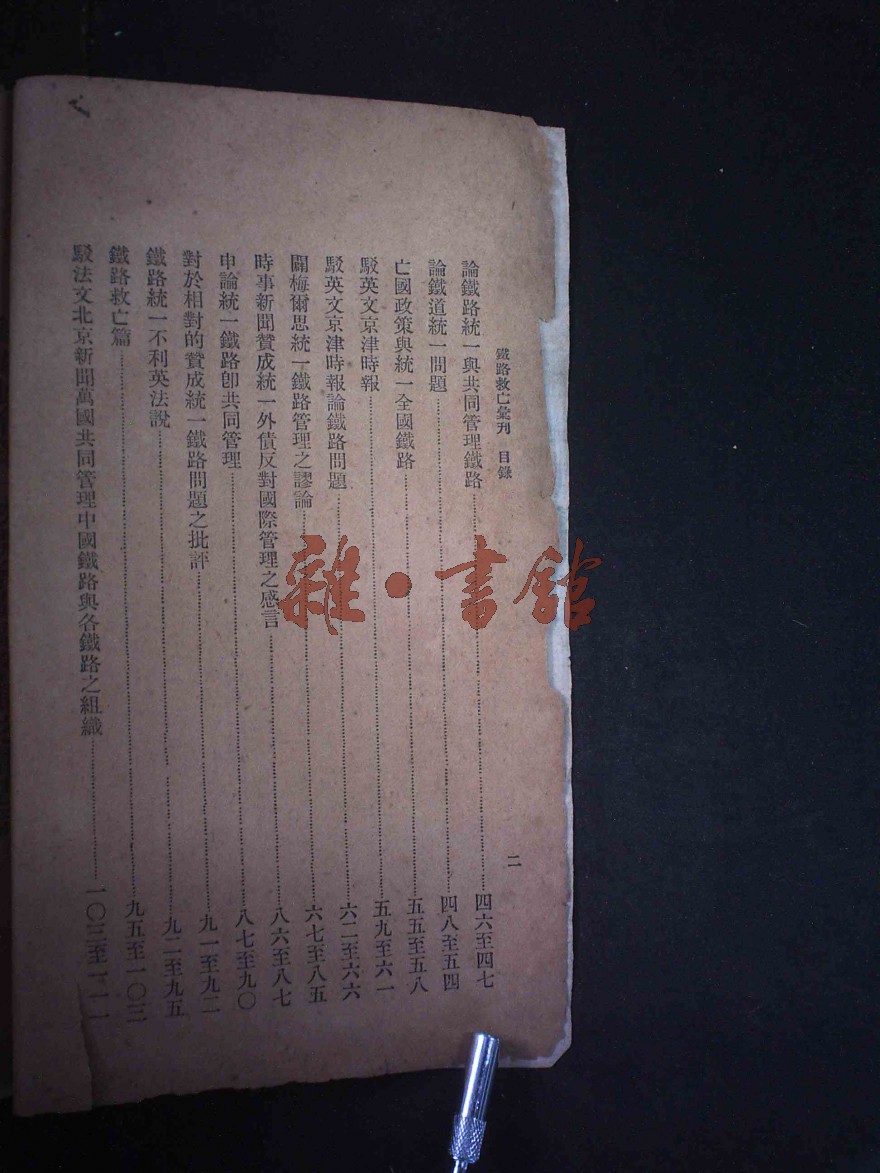 鐵路救亡彙刊 目錄 二
論鐵路統一與共同管理鐵路……四六至四七
論鐵道統一問題……四八至五四
亡國政策與統一全國鐵路……五五至五八
駁英文京津時報……五九至六一
駁英文京津時報論鐵路問題……六二至六六
闢梅爾思統一鐵路管理之謬論……六七至八五
時事新聞贊成統一外債反對國際管理之感言……八六至八七
申論統一鐵路卽共同管理……八七至九〇
對於相對的贊成統一鐵路問題之批評……九一至九二
鐵路統一不利英法說……九二至九五
鐵路救亡篇……九五至一〇三
駁法文北京新聞萬國共同管理中國鐵路與各鐵路之組織……一〇三至一一一
雜·書館